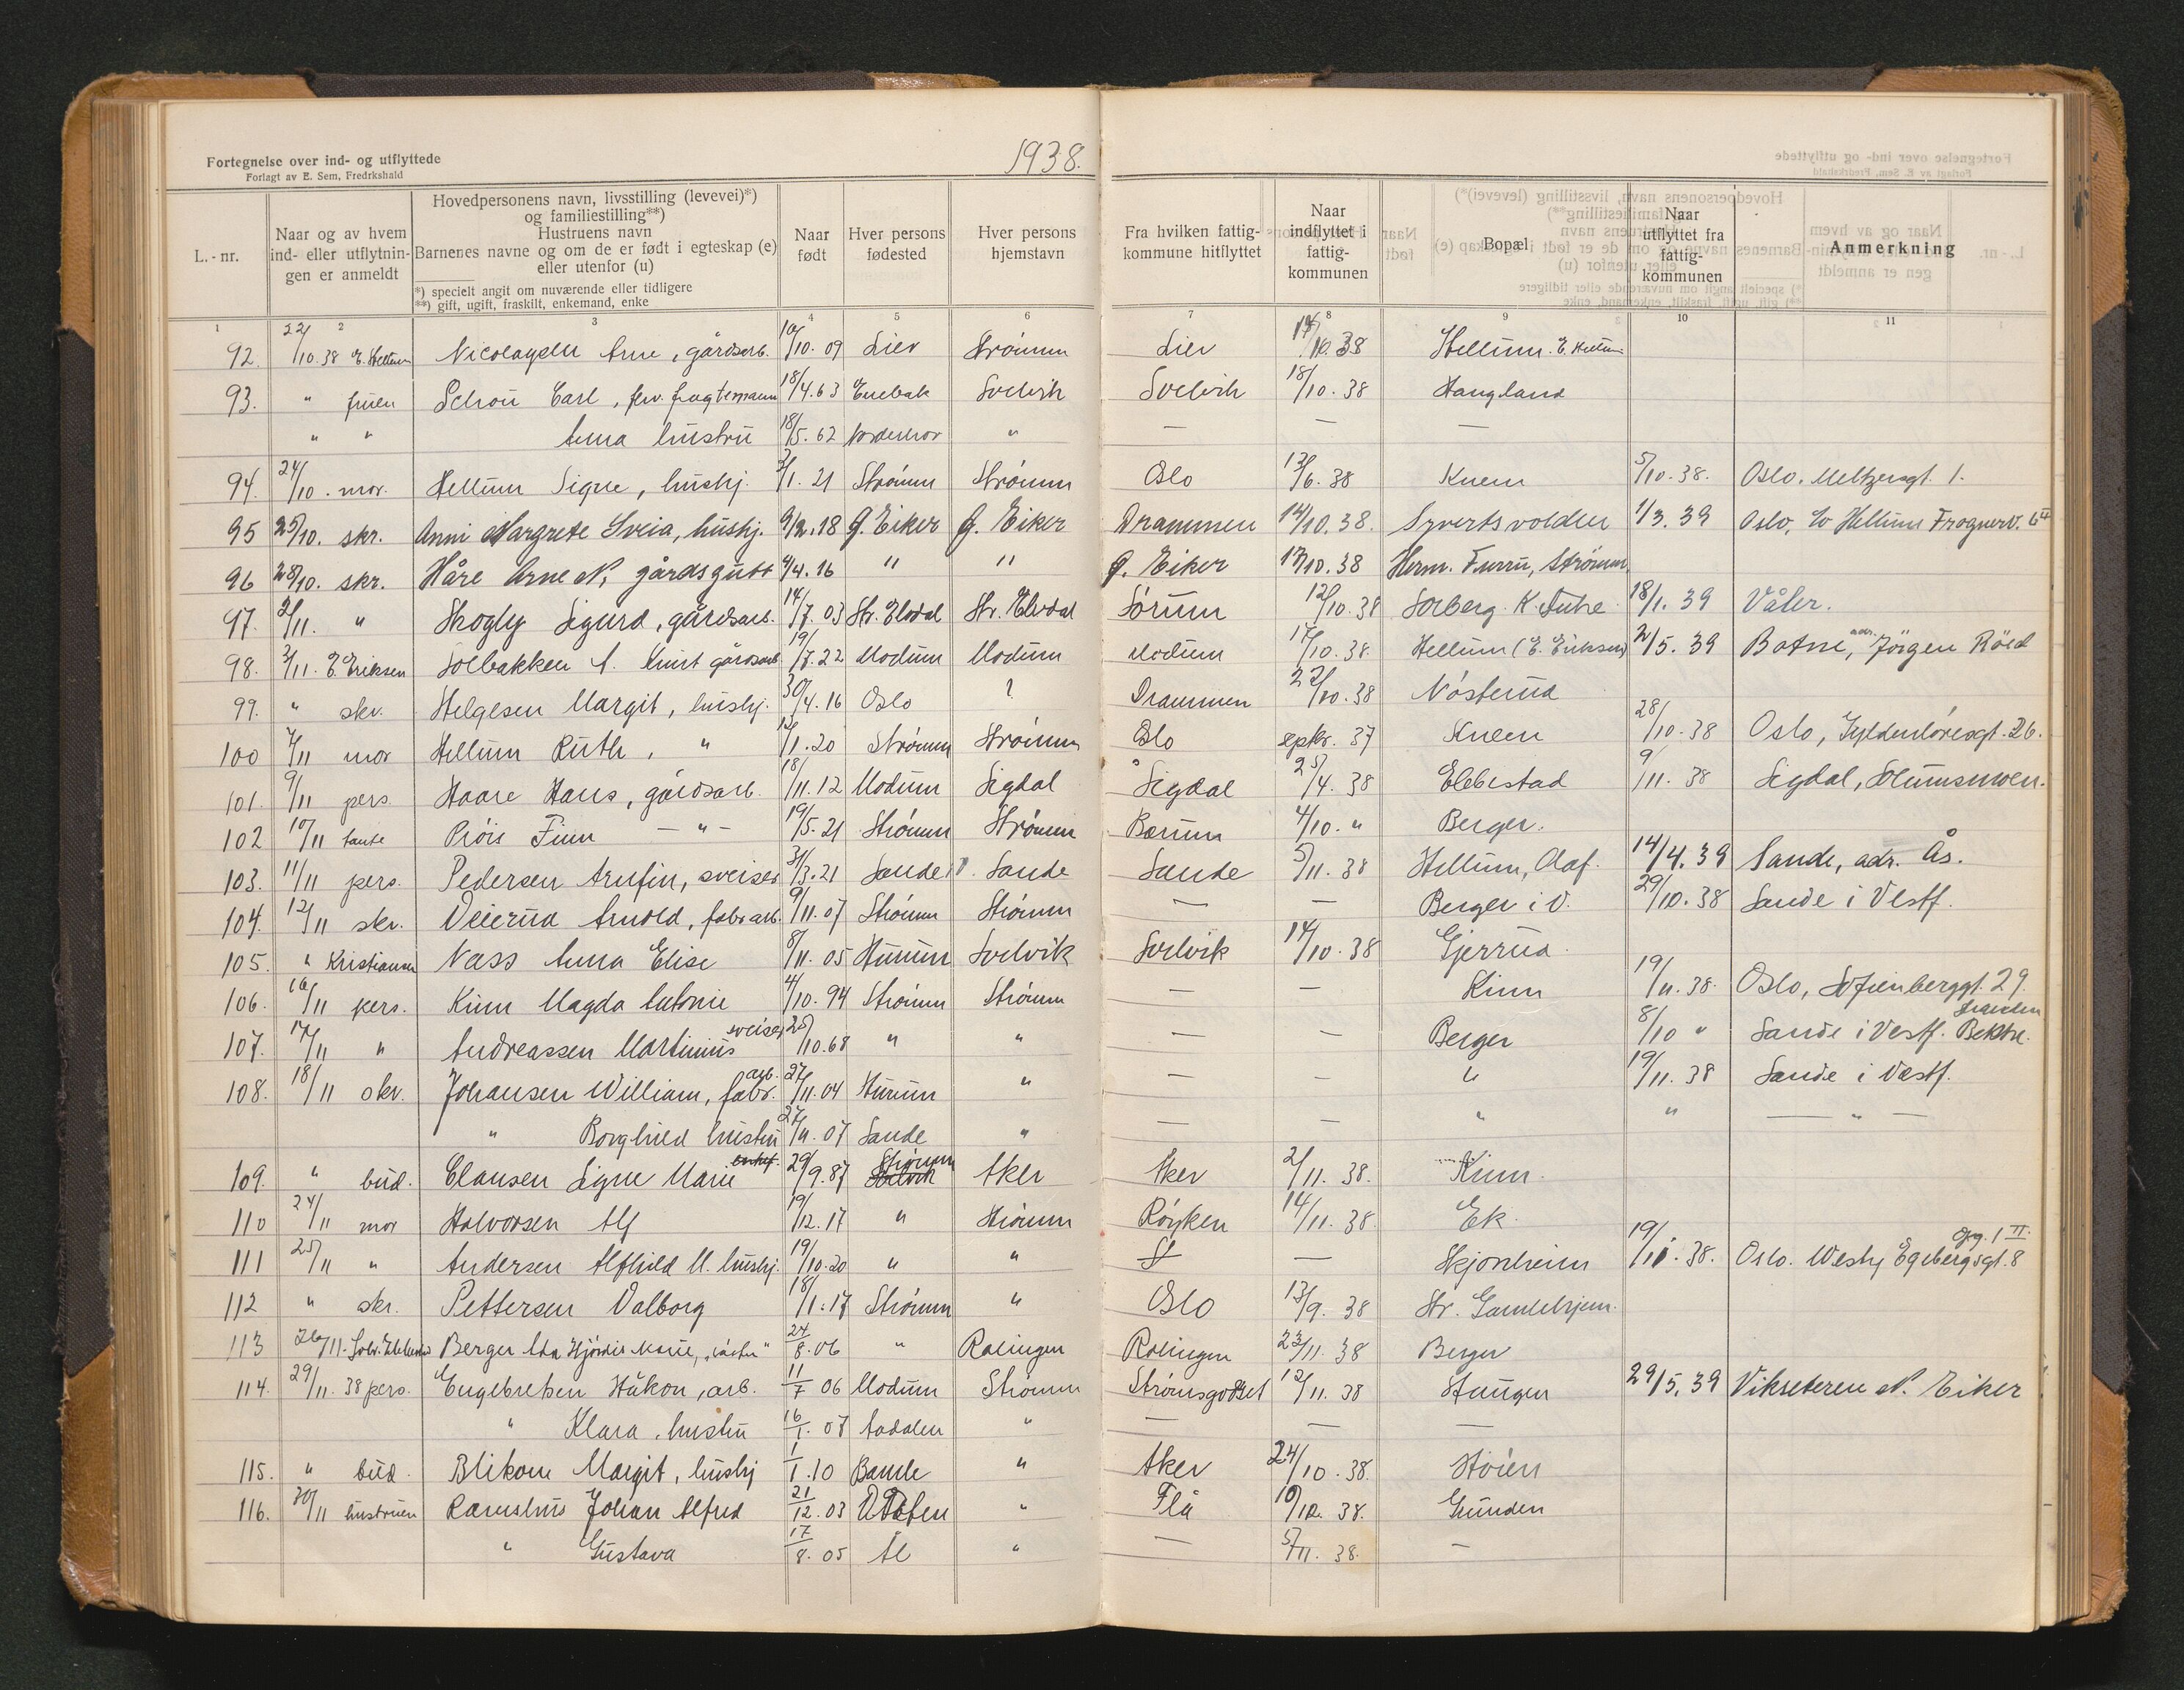 Fortegnelse over ind- og utflyttede
Forlagt av E. Sem, Fredrkshald
1938.
L.-nr.
Naar og av hvem ind- eller utflytnin- gen er anmeldt
Hovedpersonens navn, livsstilling (levevei)*) og familiestilling**) Hustruens navn Barnenes navne og om de er født i egteskap (e) eller utenfor (u)
*) specielt angit om nuværende eller tidligere
**) gift, ugift, fraskilt, enkemand, enke
Naar født
Hver persons fødested
Hver persons hjemstavn
Fra hvilken fattig- kommune hitflyttet
Naar indflyttet i fattig- kommunen
Bopæl
Naar utflyttet fra fattig- kommunen
Anmerkning
1 2 3 4 5 6 7 8 9 10 11
92. 22/10.38 E. Hellum Nicolaysen Arne, gårdsarb. 10/10.09 Lier Strømm Lier 14/10.38 Hellum. E. Hellum
93. " fruen Schou Carl, frv. fragtemann 18/4.63 Enebak Svelvik Svelvik 18/10.38 Haugland
" " Anna hustru 18/5.62 " — — —
94. 24/10. mor. Hellum Signe, hushj. 2/1.21 Strømm Strømm Oslo 13/6.38 Knem 5/10.38. Oslo. Meltzersgt. 1.
95 25/10. skr. Anni Margrete Sveia, hushj. 9/2.18 Ø. Eiker Ø. Eiker Drammen 14/10.38. Syvertsvolden 1/3.39 Oslo, Hellum Frognerv. 6 II
96 28/10. skr. Håre Arne N, gårdsgutt 4/4.16 " " Ø. Eiker 17/10.38 Herm. Furru, Strømm
97. 2/11. " Skogly Sigurd, gårdsarb. 14/7.03 Str. Elvdal Str. Elvdal Sørum 12/10.38 Solberg. K. Tuhe 18/1.39 Våler.
98. 3/11. E. Eriksen Solbakken A. Knut gårdsarb 19/7.22 Modum Modum Modum 17/10.38. Hellum (E. Eriksen) 2/5.39 Botne, adr. Jörgen Röed
99. " skr. Helgesen Margit, hushj. 30/4.16 Oslo ? Drammen 22/10.38 Nøsterud
100 7/11 mor Hellum Ruth, " 12/1.20 Strømm Strømm Oslo septbr. 37 Knem 28/10.38 Oslo, Gyldenløvesgt. 26.
101. 9/11 pers. Haare Hans, gårdsarb. 18/11.12 Modum Sigdal Sigdal 25/4.38 Ebbestad 9/11.38 Sigdal, Solumsmoen.
102 10/11 tante Prøis Finn — " — 19/5.21 Strømm Strømm Bærum 4/10. " Berger.
103. 11/11 pers. Pedersen Arnfin, sveiser 31/3.21 Sande i V. Sande Sande 5/11.38 Hellum, Olaf. 14/4.39 Sande, adr. Ås.
104. 12/11 skr. Veierud Arnold, fabr arb. 9/11.07 Strømm Strømm — — Berger i V. 29/10.38 Sande i Vestf.
105. " Kristiansen Næss Anna Elise 8/11.05 Hurum Svelvik Svelvik 14/10.38 Gjerrud.
106. 16/11 pers. Kinn Magda Antonie 4/10.94 Strømm Strømm — — Kinn 19/11.38. Oslo, Sofienberggt. 29.
107. 17/11 " Andreassen Martinius sveiser 25/10.68 " " — — Berger 8/10 " Sande i Vestf. Bekkhe.
108. 18/11 skr. Johansen William, fabr. arb. 27/11.04 Hurum " — — " 19/11.38 Sande i Vestf.
" Borghild hustru 27/11.07 Sande " — — " " — " —
109. " bud. Clausen Signe Marie enkef. 29/9.87 Strømm Svelvik Aker Aker 2/11.38. Kinn.
110 24/11 mor Halvorsen Alf 19/12.17 " Strømm Røyken 14/11.38. Ek.
111 25/11 " Andersen Alfhild M. hushj. 19/10.20 " " — Skjønheim 19/11.38. Oslo. Westy Egebergsgt. 8 Opg. 1 II.
112 " skr. Pettersen Valborg 18/1.17 Strømm " Oslo 13/9.38 Str. Gamlehjem.
113 26/11. Berger Ada Hjördis Marie, 24/8.06 " Rælingen Rælingen 23/11.38 Berger
114. 29/11.38 pers. Engebretsen Håkon, arb. 11/7 06 Modum Strømm Strømsgodset 12/11.38 Haugen 29/5.39 Vikseteren N. Eiker
" Klara, hustru 16/1.07 Aadalen " — — —
115. " bud. Blikom Margit, hushj 1/1.10 Bamle " Aker 24/10.38. Høien
116. 30/11 hustruen Ramshus Johan Alfred 21/12.03 " Flå 10/12.38. Grunden
" Gustava 17/8.05 Ål " — 5/11.38. —